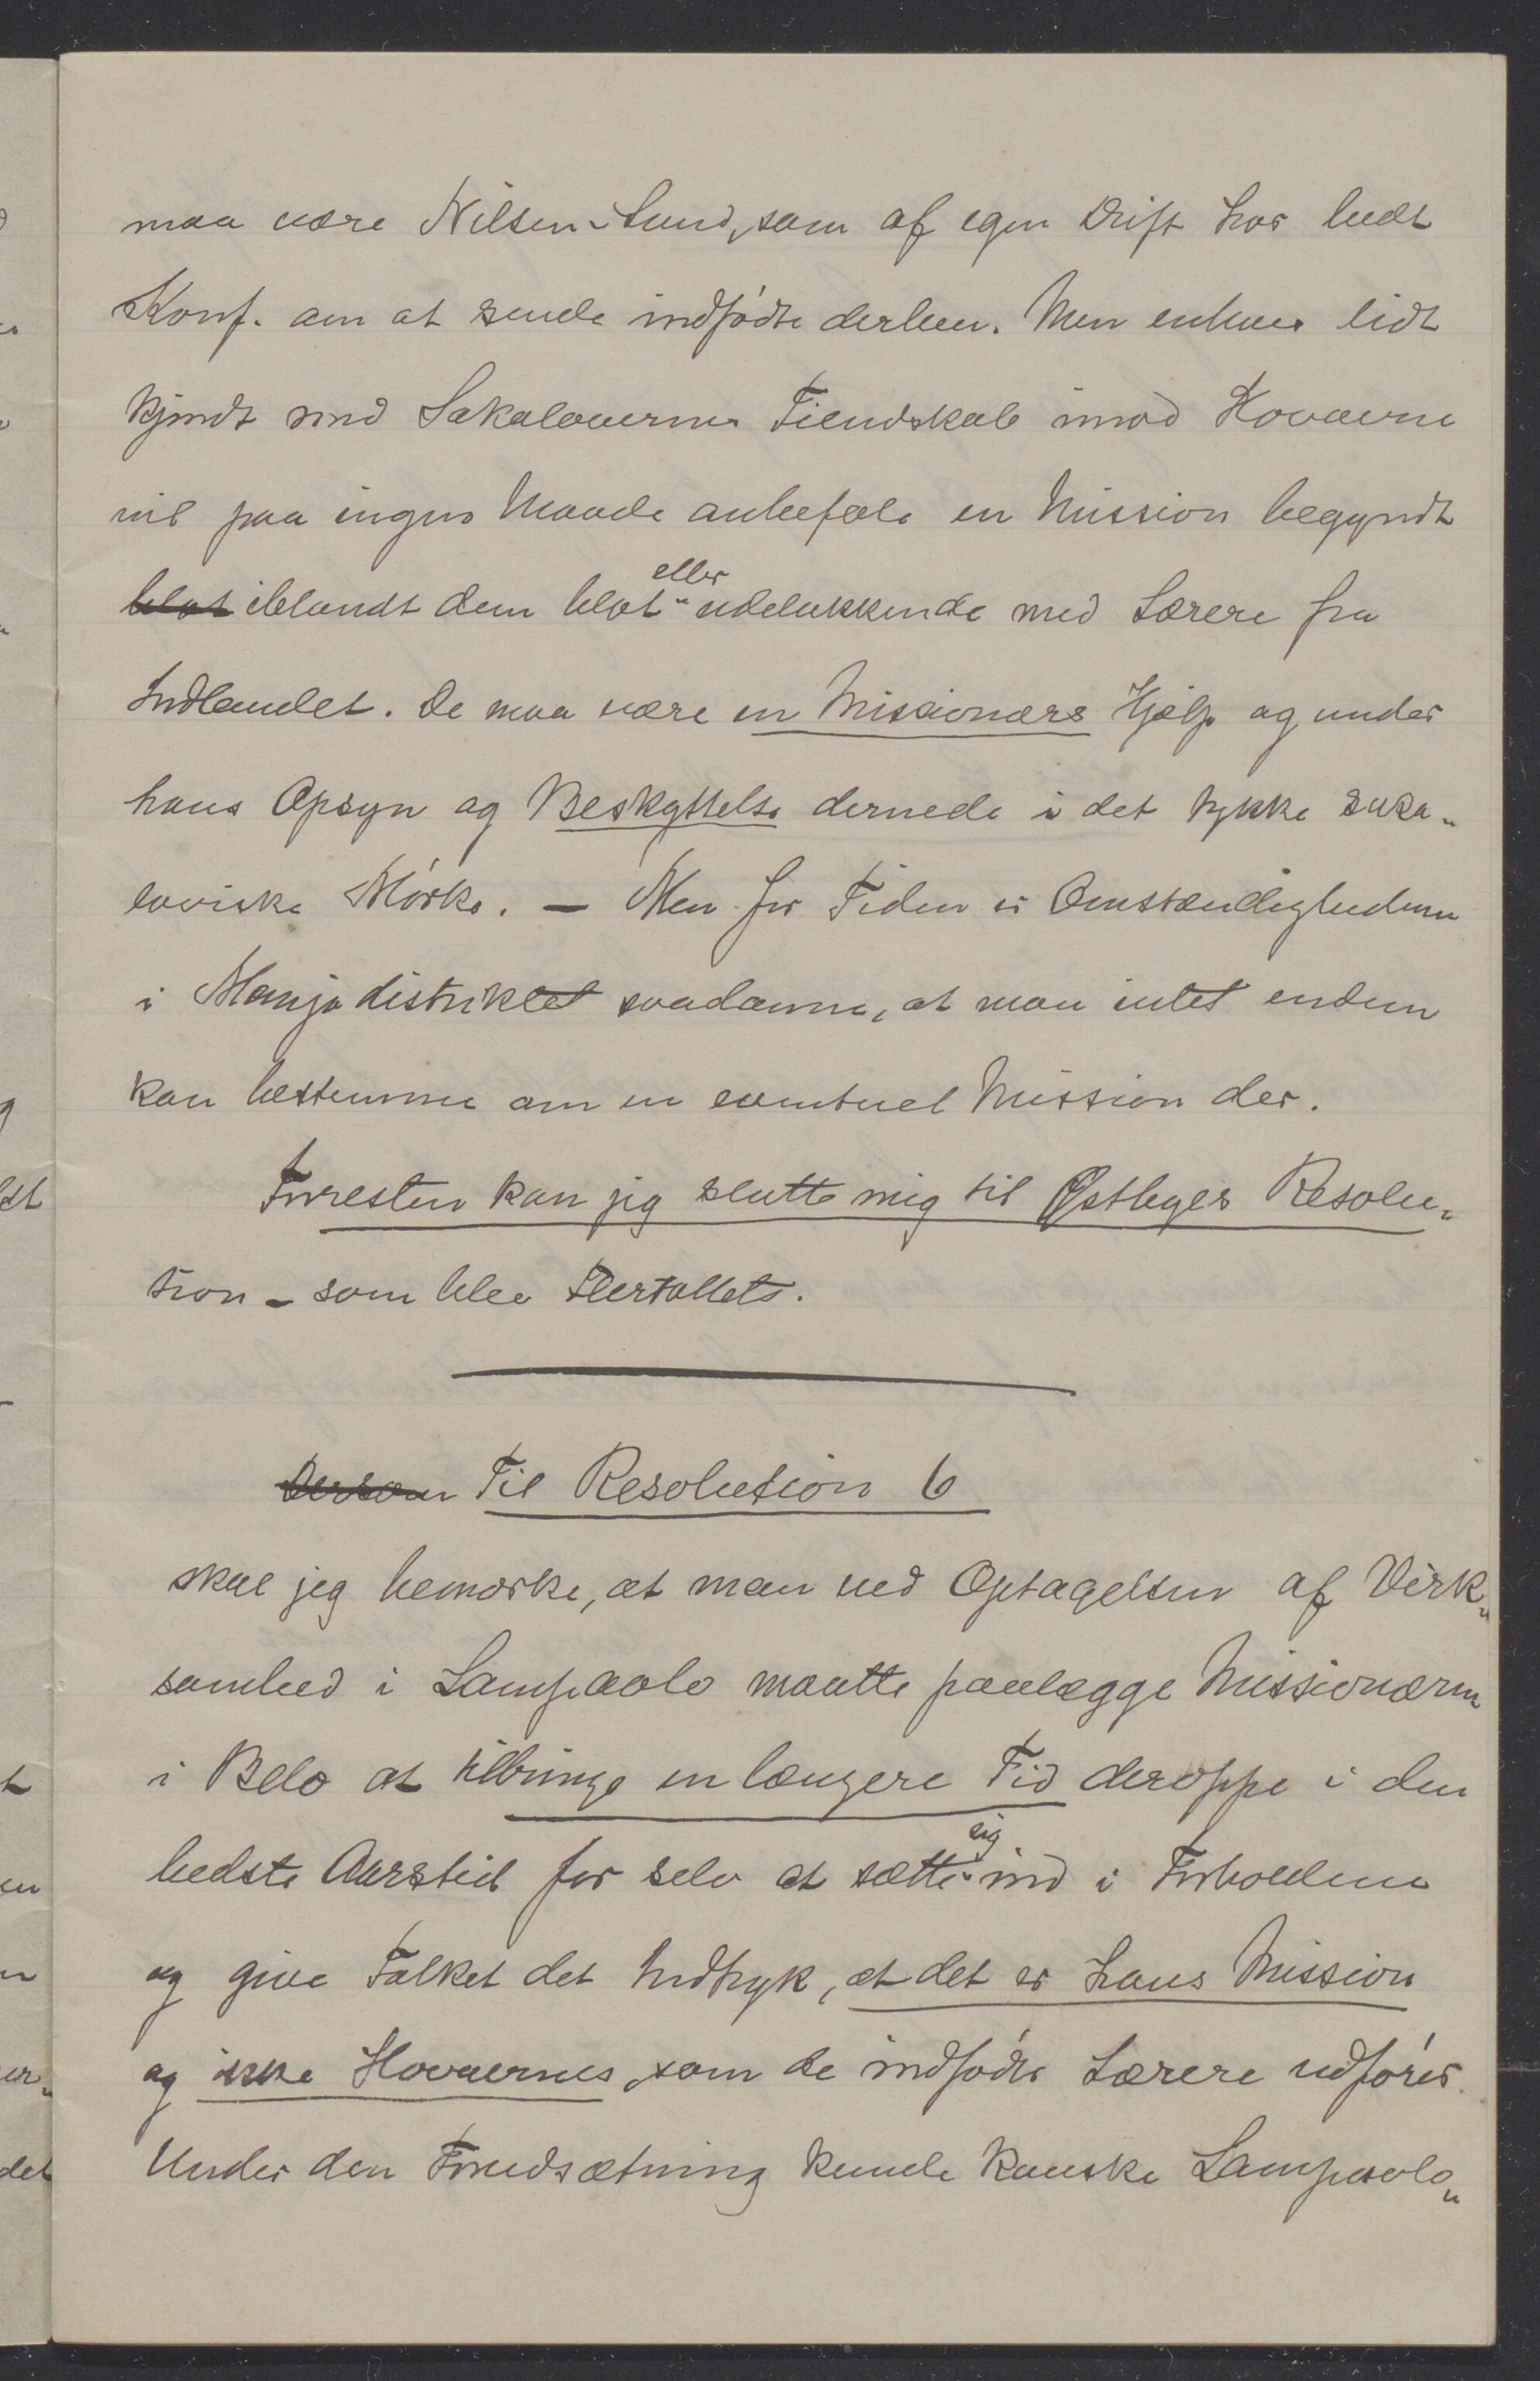 maa være Nilsen-Lund, som af egen Drift har bedt
Konf. om at sende indfødte derhen. Men enhver lidt
kjendt med Sakalavernes Fiendskab imod Hovaerne
vil paa ingen Maade anbefale en Mission begyndt
blot iblandt dem blot eller udelukkende med Lærere fra
Indlandet. De maa være en Missionærs Hjælp og under
hans Opsyn og Beskyttelse dernede i det tykke saka-
laviske Mørke. — Men for Tiden er Omstændighederne
i Manjadistriktet saadanne, at man intet endnu
kan bestemme om en eventuel Mission der.
Forresten kan jeg slutte mig til Østbyes Resolu-
tion - som blev Flertallets.
Dersom Til Resolution 6
skal jeg bemærke, at man ved Optagelsen af Virk-
somhed i Lampaolo maatte paalægge Missionæren
i Belo at tilbringe en længere Tid deroppe i den
bedste Aarstid for selv at sætte sig ind i Forholdene
og give Folket det Indtryk, at det er hans Mission
og ikke Hovaernes, som de indfødte Lærere udfører.
Under den Forudsætning kunde kanske Lampaolo-